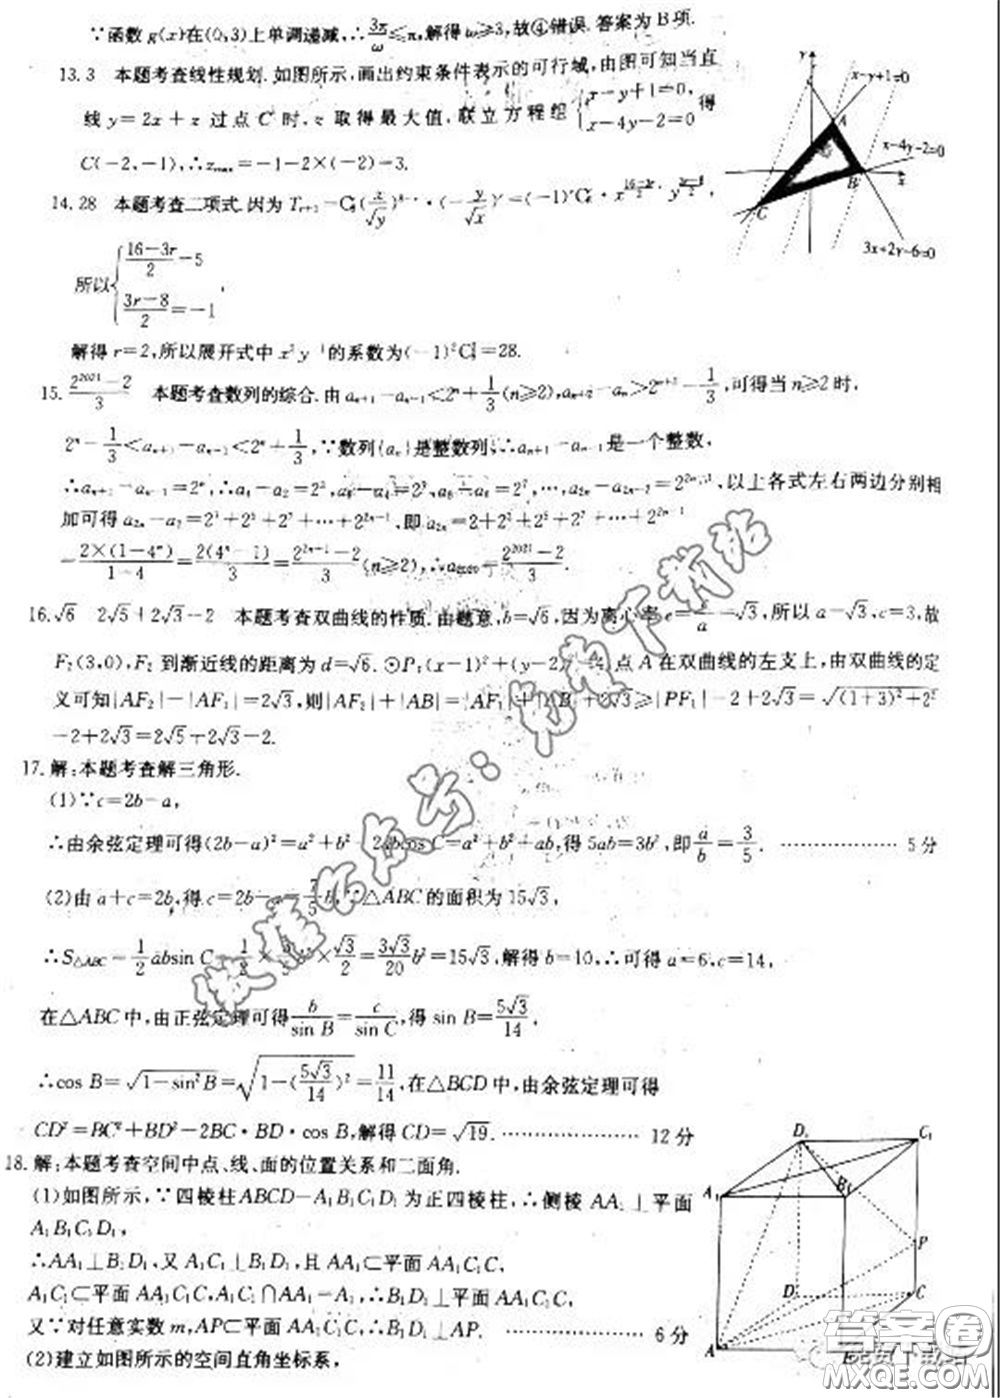 ∵函数 g(x)在(0,3)上单调递减,∴3π/ω≤π,解得 ω≥3,故④错误. 答案为 B 项.
13. 3 本题考查线性规划. 如图所示,画出约束条件表示的可行域,由图可知当直
线 y=2x+z 过点 C 时, z 取得最大值, 联立方程组 {x-y+1=0, x-4y-2=0 得
C(-2,-1),∴z_max=-1-2×(-2)=3.
x-y+1=0
x-4y-2=0
3x+2y-6=0
14. 28 本题考查二项式. 因为
所以{(16-3r)/2=5 (3r-8)/2=-1 ,
解得 r=2,所以展开式中 x⁵y⁻¹的系数为(-1)²C₈²=28.
15. (2²⁰²¹-2)/3 本题考查数列的综合. 由 aₙ₊₁-aₙ₋₁<2ⁿ+1/3(n≥2),aₙ₊₂-aₙ>2ⁿ⁺²-1/3,可得当 n≥2 时,
2ⁿ-1/3<aₙ₊₁-aₙ₋₁<2ⁿ+1/3,∵数列{aₙ}是整数列,∴aₙ₊₁-aₙ₋₁是一个整数,
∴aₙ₊₁-aₙ₋₁=2ⁿ,
以上各式左右两边分别相
加可得 即 a₂ₙ=2+2³+2⁵+2⁷+…+2²ⁿ⁻¹
=2×(1-4ⁿ)/(1-4)=2(4ⁿ-1)/3=(2²ⁿ⁺¹-2)/3(n≥2),∴a₂₀₂₀=(2²⁰²¹-2)/3.
16. √6 2√5+2√3-2 本题考查双曲线的性质. 由题意,b=√6,因为离心率 e= =√3,所以 a=√3,c=3,故
F₂(3,0),F₂ 到渐近线的距离为 d=√6. 点 A 在双曲线的左支上,由双曲线的定
义可知|AF₂|-|AF₁|=2√3,则|AF₂|+|AB|=|AF₁|+ +2√3≥|PF₁|-2+2√3=√((1+3)²+2²)
-2+2√3=2√5+2√3-2.
17. 解:本题考查解三角形.
(1)∵c=2b-a,
∴由余弦定理可得(2b-a)²=a²+b²-2abcos C=a²+b²+ab,得 5ab=3b²,即 a/b=3/5. ………… 5 分
(2)由 a+c=2b,得 c=2b-a=7/5 b,∵△ABC 的面积为 15√3,
∴S△ABC=1/2 absin C= ×√3/2=3√3/20 =15√3,解得 b=10,∴可得 a=6,c=14,
在△ABC 中,由正弦定理可得 b/sin B=c/sin C,可得 sin B=5√3/14,
∴cos B=√(1-sin²B)=√(1-(5√3/14)²)=11/14,在△BCD 中,由余弦定理可得
CD²=BC²+BD²-2BC·BD·cos B,解得 CD=√19. ………… 12 分
18. 解:本题考查空间中点、线、面的位置关系和二面角.
(1)如图所示,∵四棱柱 ABCD-A₁B₁C₁D₁ 为正四棱柱,∴侧棱 AA₁⊥平面
A₁B₁C₁D₁,
∴AA₁⊥B₁D₁,又 A₁C₁⊥B₁D₁,且 AA₁⊂平面 AA₁C₁C,
A₁C₁⊂平面 AA₁C₁C,A₁C₁∩AA₁=A₁,∴B₁D₁⊥平面 AA₁C₁C,
又∵对任意实数 m,AP⊂平面 AA₁C₁C,∴B₁D₁⊥AP. ………… 6 分
(2)建立如图所示的空间直角坐标系,
y
A
B
x
C
D₁
C₁
A₁
B₁
P
D
C
A
微信公众号:免费下载站
答案圈